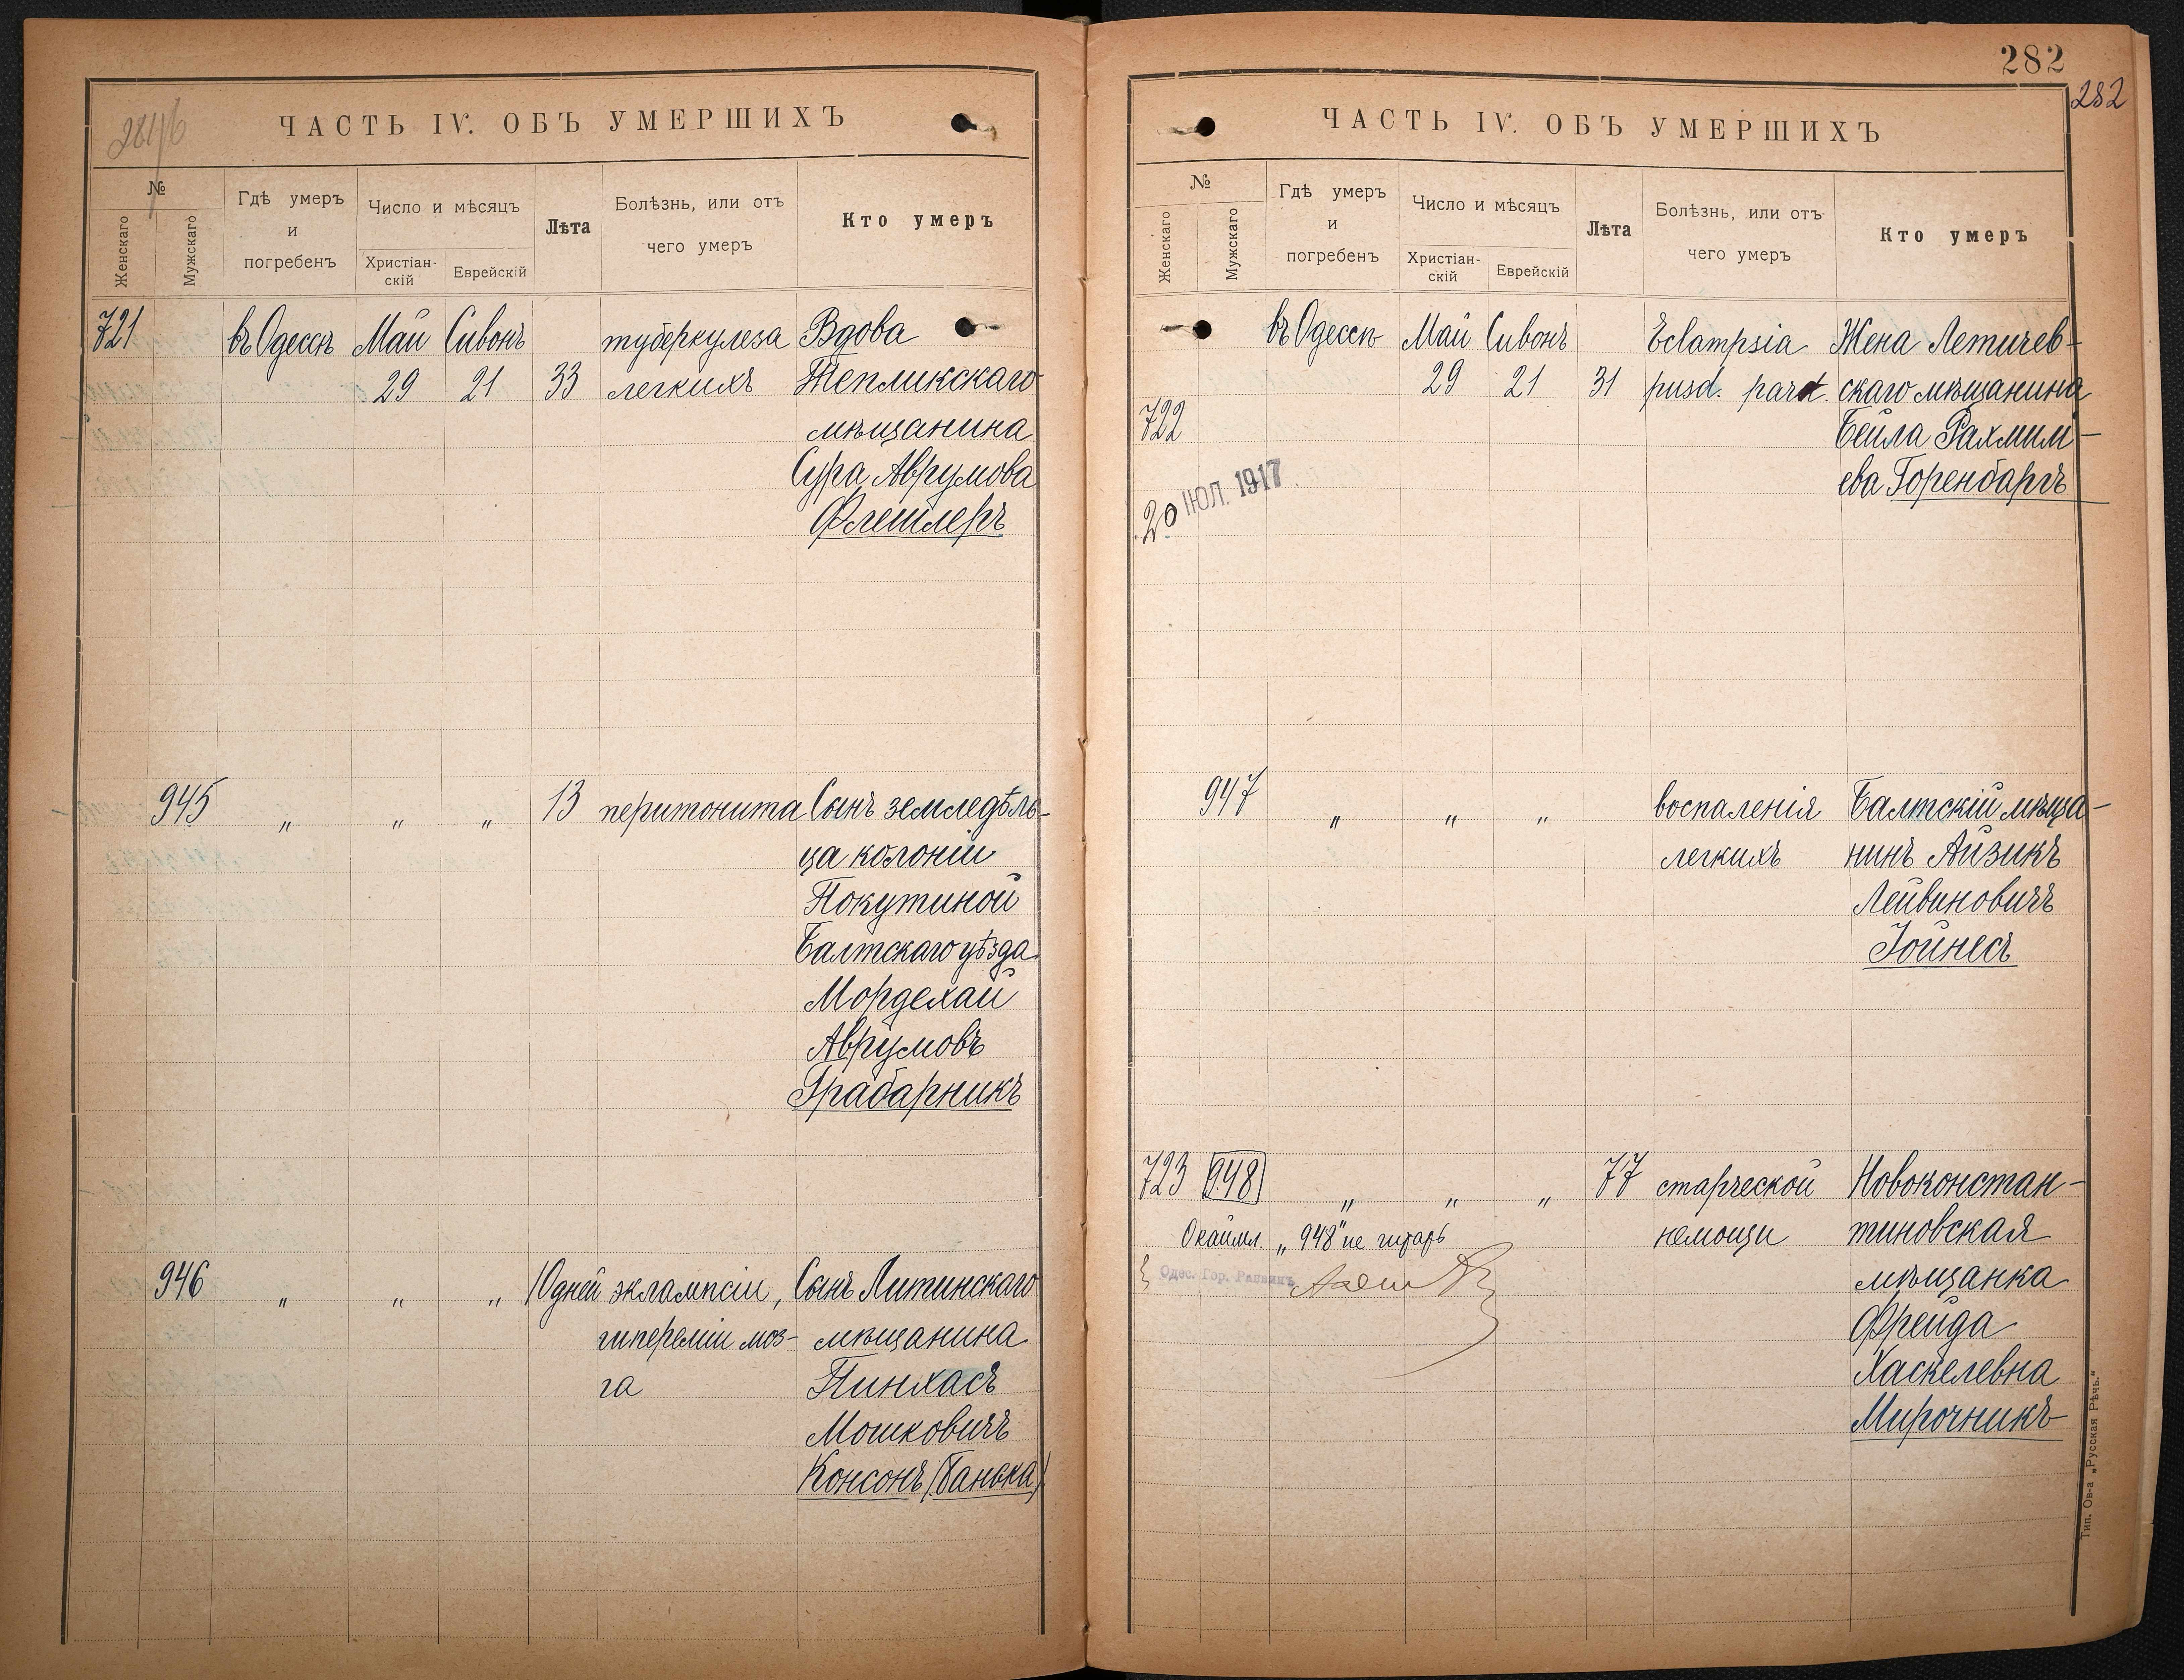 ЧАСТЬ IV. ОБЪ УМЕРШИХЪ
№
Женскаго
Мужскаго
Гдѣ умеръ
и
погребенъ
Число и мѣсяцъ
Христіан-
скій
Еврейскій
Лѣта
Болѣзнь, или отъ
чего умеръ
Кто умеръ
721 въ Одессѣ Май Сивонъ туберкулеза Вдова
29 21 33 легкихъ Тепликскаго
мѣщанина
Сура Аврумова
Флешлеръ
945 „ „ „ 13 перитонита Сынъ земледѣль-
ца колоніи
Покутиной
Балтскаго уѣзда
Мордехай
Аврумовъ
Грабарникъ
946 „ „ „ 10 дней эклампсіи, Сынъ Литинскаго
гипереміи моз- мѣщанина
га Пинхасъ
Мошковичъ
Консонъ (Банька)
282
282
ЧАСТЬ IV. ОБЪ УМЕРШИХЪ
№
Женскаго
Мужскаго
Гдѣ умеръ
и
погребенъ
Число и мѣсяцъ
Христіан-
скій
Еврейскій
Лѣта
Болѣзнь, или отъ
чего умеръ
Кто умеръ
въ Одессѣ Май Сивонъ Eclampsia Жена Летичев-
29 21 31 скаго мѣщанина
722 Бейла Рахмим-
ева Горенбаргъ
20 ІЮЛ. 1917
947 „ „ „ воспаленія Балтскій мѣща-
легкихъ нинъ Айзикъ
Лейвиновичъ
Іойнесъ
723 948 „ „ „ 77 старческой Новоконстан-
Окаймл „948" не читать немощи тиновская
Одес. Гор. Раввинъ мѣщанка
Фрейда
Хаскелевна
Мирочникъ
Тип. Ов-а „Русская Рѣчь."